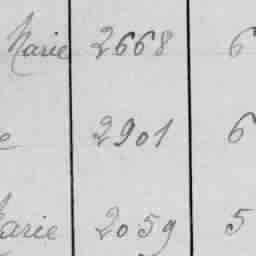 Marie 2668 6
e 2901 6
Marie 2059 5